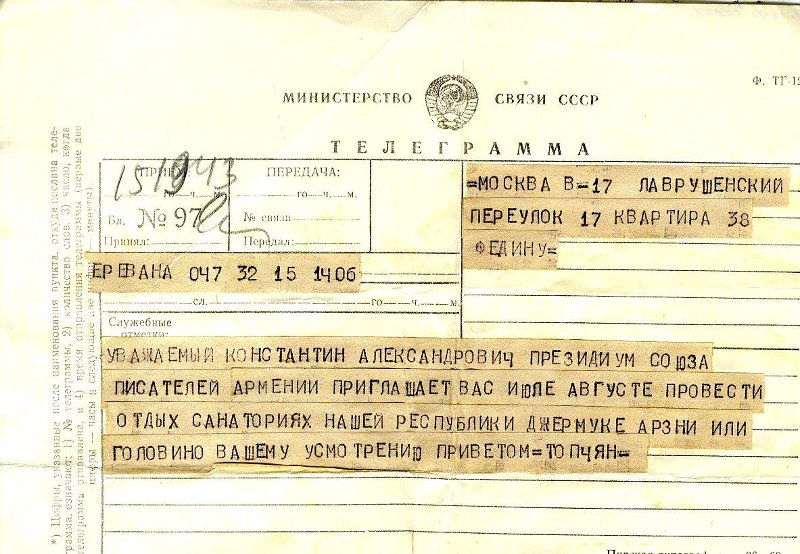 Ф. ТГ-
МИНИСТЕРСТВО СВЯЗИ СССР
ТЕЛЕГРАММА
ПРИЕМ:
15 1943
го ч. м.
Бл. № 97
Принял:
ПЕРЕДАЧА:
го ч. м.
№ связи
Передал:
=МОСКВА В-17 ЛАВРУШЕНСКИЙ
ПЕРЕУЛОК 17 КВАРТИРА 38
ФЕДИНУ=
ЕРЕВАНА 047 32 15 1406
сл. го ч. м.
Служебные
отметки:
УВАЖАЕМЫЙ КОНСТАНТИН АЛЕКСАНДРОВИЧ ПРЕЗИДИУМ СОЮЗА
ПИСАТЕЛЕЙ АРМЕНИИ ПРИГЛАШАЕТ ВАС ИЮЛЕ АВГУСТЕ ПРОВЕСТИ
ОТДЫХ САНАТОРИЯХ НАШЕЙ РЕСПУБЛИКИ ДЖЕРМУКЕ АРЗНИ ИЛИ
ГОЛОВИНО ВАШЕМУ УСМОТРЕНИЮ ПРИВЕТОМ=ТОПЧЯН=
*) Цифры, указанные после наименования пункта, откуда послана теле-
грамма, означают: 1) № телеграммы, 2) количество слов, 3) число, когда
телеграмма отправлена, и 4) время отправления телеграммы (первые две
цифры — часы и следующие две цифры — минуты)